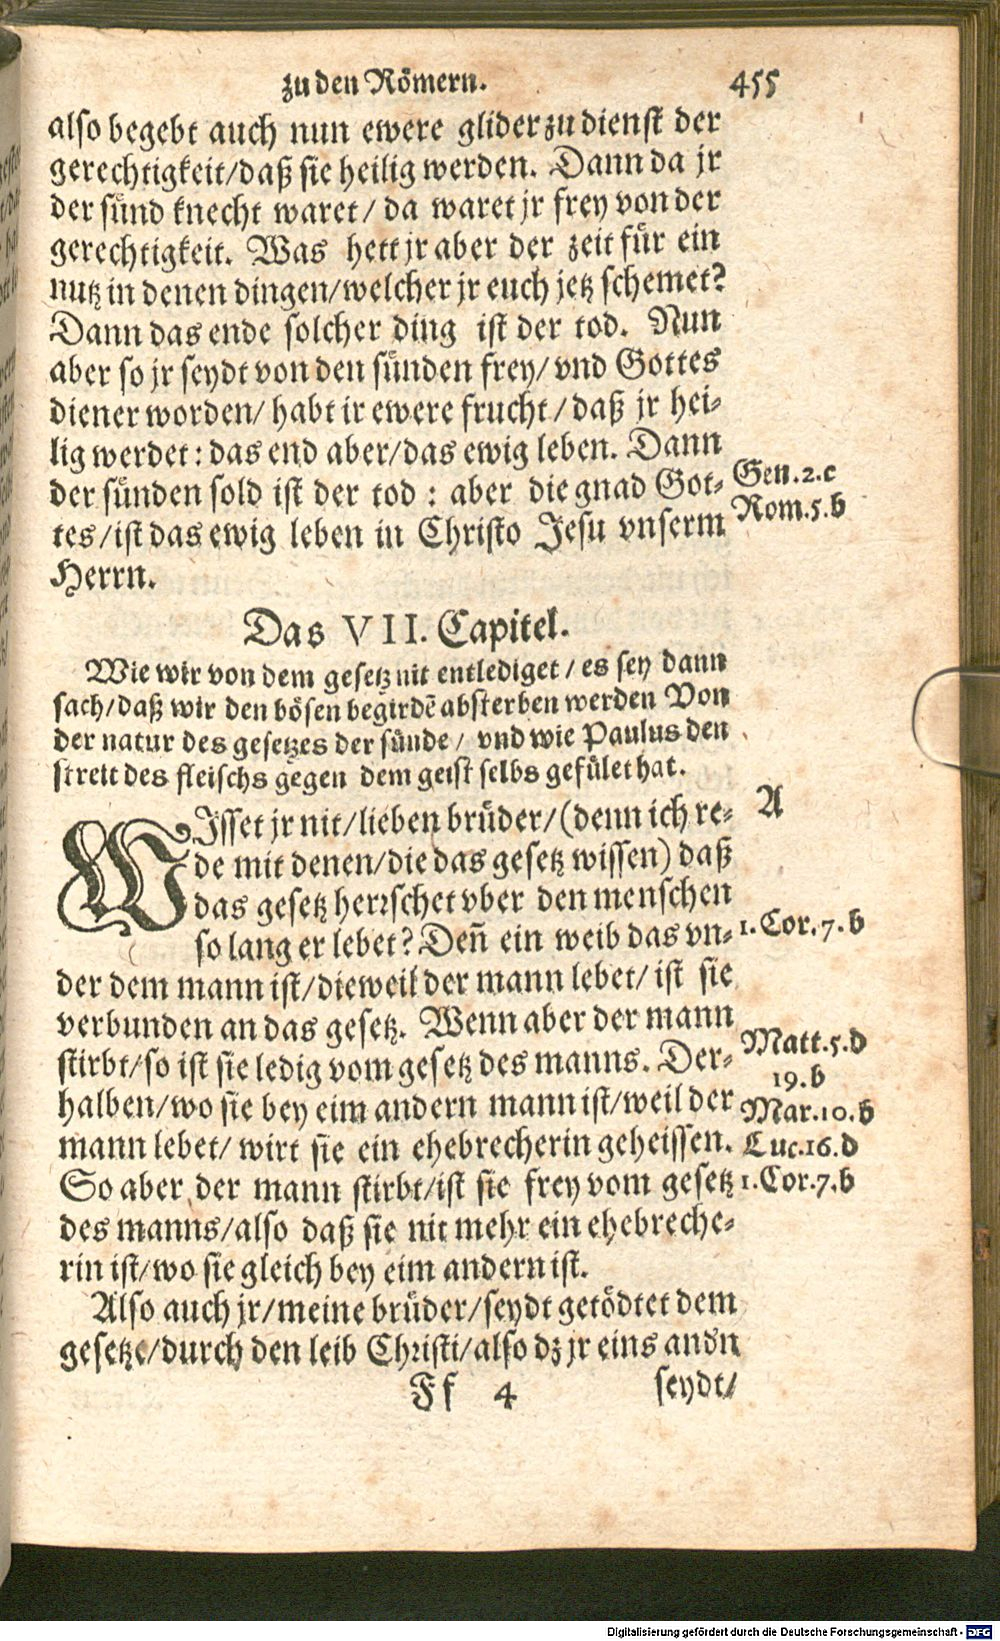 zu den Römern. 455
also begebt auch nun ewere glider zu dienst der
gerechtigkeit/daß sie heilig werden. Dann da jr
der sünd knecht waret/ da waret jr frey von der
gerechtigkeit. Was hett jr aber der zeit für ein
nutz in denen dingen/welcher jr euch jetz schemet?
Dann das ende solcher ding ist der tod. Nun
aber so jr seydt von den sünden frey/ vnd Gottes
diener worden/ habt ir ewere frucht/ daß jr hei-
lig werdet: das end aber/das ewig leben. Dann
der sünden sold ist der tod: aber die gnad Got- Gen.2.c
tes/ist das ewig leben in Christo Jesu vnserm Rom.5.b
Herrn.
Das VII. Capitel.
Wie wir von dem gesetz nit entlediget/ es sey dann
sach/daß wir den bösen begirdē absterben werden Von
der natur des gesetzes der sünde/ vnd wie Paulus den
streit des fleischs gegen dem geist selbs gefület hat.
WIsset jr nit/lieben brüder/(denn ich re- A
de mit denen/die das gesetz wissen) daß
das gesetz herrschet vber den menschen
so lang er lebet? Deñ ein weib das vn- 1.Cor.7.b
der dem mann ist/dieweil der mann lebet/ ist sie
verbunden an das gesetz. Wenn aber der mann
stirbt/so ist sie ledig vom gesetz des manns. Der- Matt.5.d
19.b
halben/wo sie bey eim andern mann ist/weil der Mar.10.b
mann lebet/ wirt sie ein ehebrecherin geheissen. Luc.16.d
So aber der mann stirbt/ist sie frey vom gesetz 1.Cor.7.b
des manns/also daß sie nit mehr ein ehebreche-
rin ist/wo sie gleich bey eim andern ist.
Also auch jr/meine brüder/seydt getödtet dem
gesetze/durch den leib Christi/also dz jr eins andn
Ff 4 seydt/
Digitalisierung gefördert durch die Deutsche Forschungsgemeinschaft - DFG